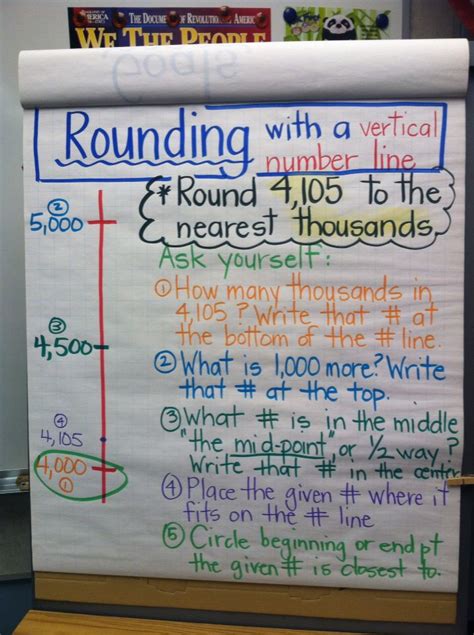 THE DOCUMENT OF REVOLUTION
AMERIC
WE THE PEOPLE
Goals
Rounding with a vertical
number line
* Round 4,105 to the
nearest thousands.
Ask yourself:
① How many thousands in
4,105? Write that # at
the bottom of the # line.
② What is 1,000 more? Write
that # at the top.
③ What # is in the middle
"the mid-point", or 1/2 way?
Write that # in the center
④ Place the given # where it
fits on the # line
⑤ Circle beginning or end pt
the given # is closest to.
②
5,000
③
4,500
④
4,105
4,000
①